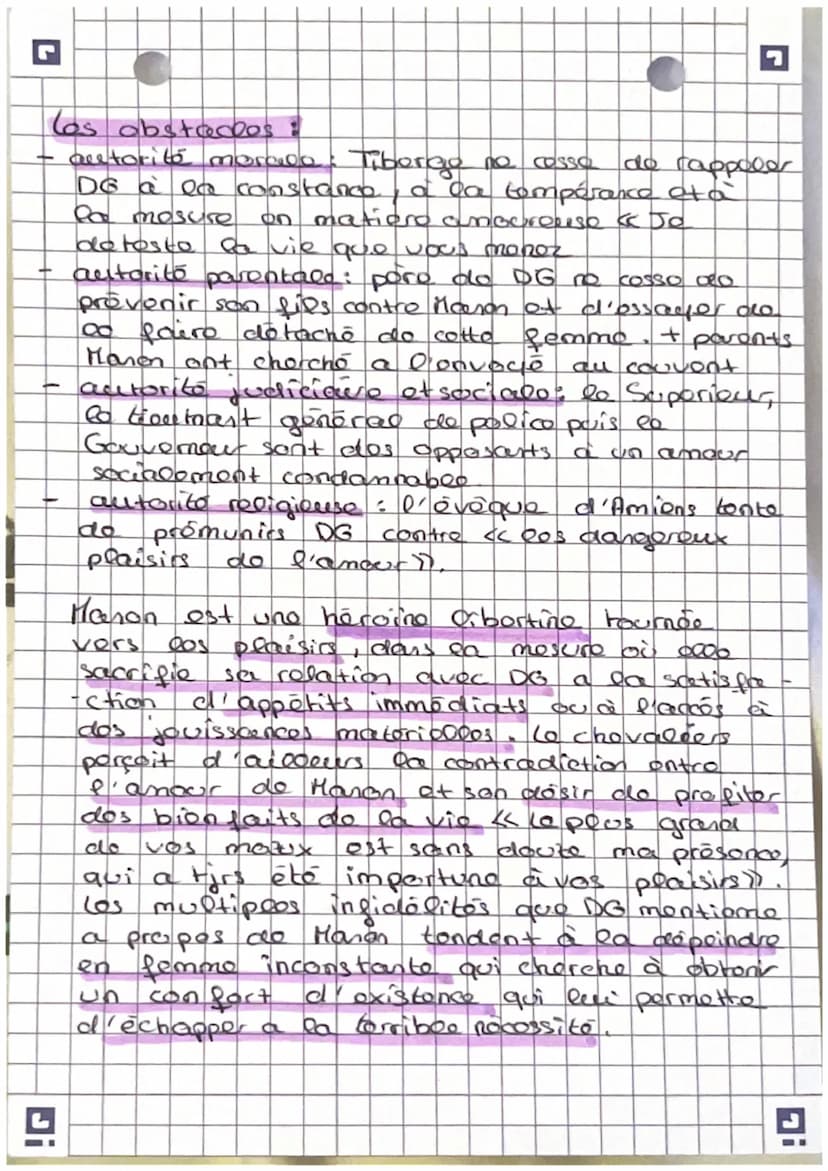 Les obstacles :
- autorité morale : Tiberge ne cesse de rappeler
DG à la constance, à la tempérance et à
la mesure en matière amoureuse « Je
deteste la vie que vous menez
- autorité parentale : père de DG ne cesse de
prévenir son fils contre Manon et d'essayer de
le faire détaché de cette femme. + parents
Manon ont cherché a l'envoyé au couvent
- autorité judiciaire et sociale : le Superieur,
le lieutenant général de police puis le
Gouverneur sont des opposants à un amour
socialement condamnable
- autorité religieuse : l'évèque d'Amiens tente
de prémunirs DG contre « les dangereux
plaisirs de l'amour ».
Manon est une héroïne libertine tournée
vers les plaisirs, dans la mesure où elle
sacrifie sa relation avec DG a la satisfa -
-ction d'appétits immédiats ou à l'accés à
des jouissances materielles. Le chevaliers
perçoit d'ailleurs la contradiction entre
l'amour de Manon et son désir de profiter
des bienfaits de la vie « le plus grand
de vos maux est sans doute ma présence,
qui a tjrs été importune à vos plaisirs ».
Les multiples infidélités que DG mentionne
a propos de Manon tendent à la dépeindre
en femme inconstante qui cherche à obtenir
un confort d'existence qui lui permette
d'échapper a la terrible nécessité.